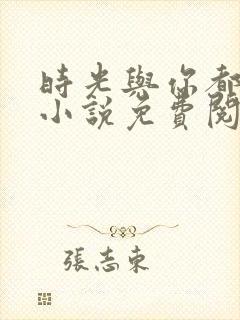 時光與你都
小說免費閱
張志東